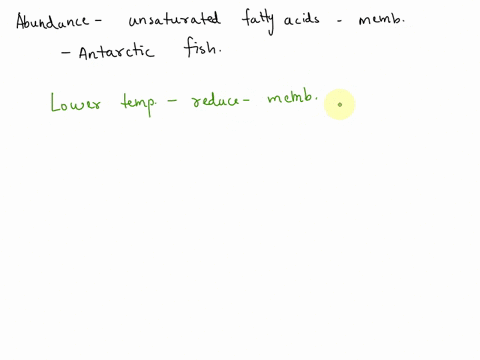 Abundance - unsaturated fatty acids - memb.
- Antarctic fish.
Lower temp. - reduce - memb.